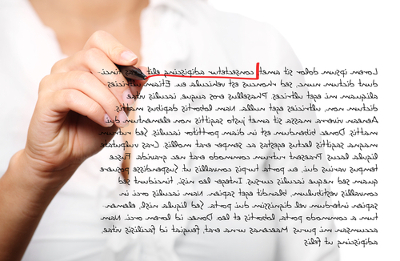 Lorem ipsum dolor sit amet, consectetur adipiscing elit. inci-
dunt dictum nunc, sed rhoncus est vehicula eu. Etiam ultricies
aliquam mi eget ultrices. Phasellus orci augue, iaculis vitae
dictum non, ultricies eget nulla. Nam lobortis dapibus mattis
Aenean viverra massa sit amet justo sagittis non elementum dui
mattis. Donec bibendum est in diam porttitor iaculis. Sed
magna sagittis lectus egestas ac semper erat mollis. Cras vulputate
ligula lacus. Praesent rutrum commodo erat nec gravida. Fusce
tempor varius dui, eu porta turpis convallis ut. Suspendisse posuere
quam sed neque iaculis cursus. Integer leo nisi, tincidunt sed
convallis vestibulum, blandit eget sapien. Nam iaculis orci in
sapien interdum vel dignissim dui porta. Sed ligula nisl, elemen-
tum a commodo porta, lobortis et leo. Donec id lorem orci. Nam
accumsan mi purus. Maecenas urna erat, feugiat id facilisis vitae,
adipiscing ut felis